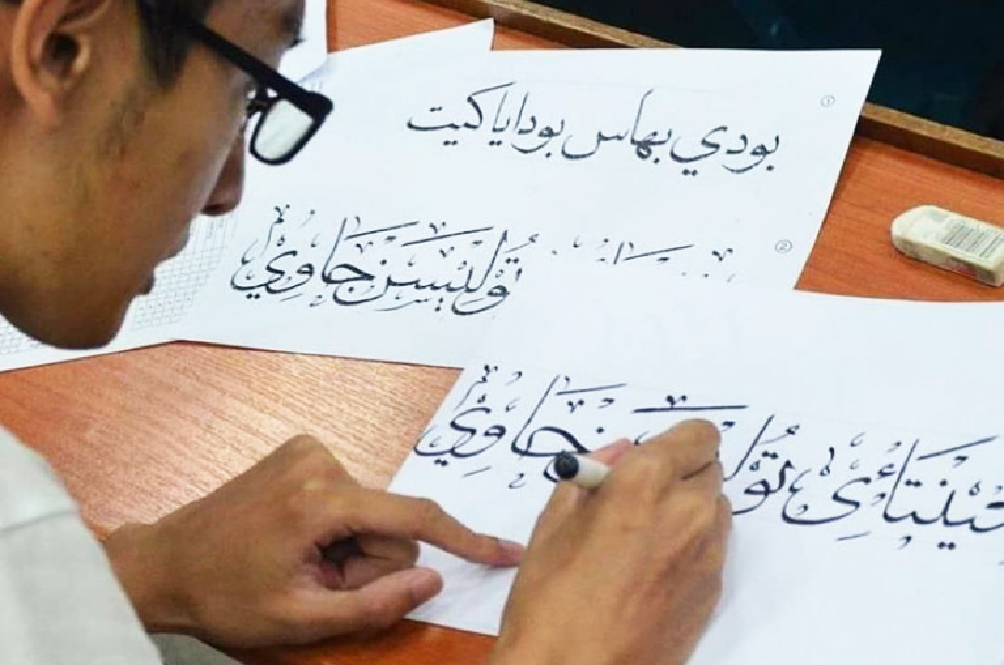 ① بودي بهاس بودايا كيت
② توليسن جاوي
چينتائي جاوي